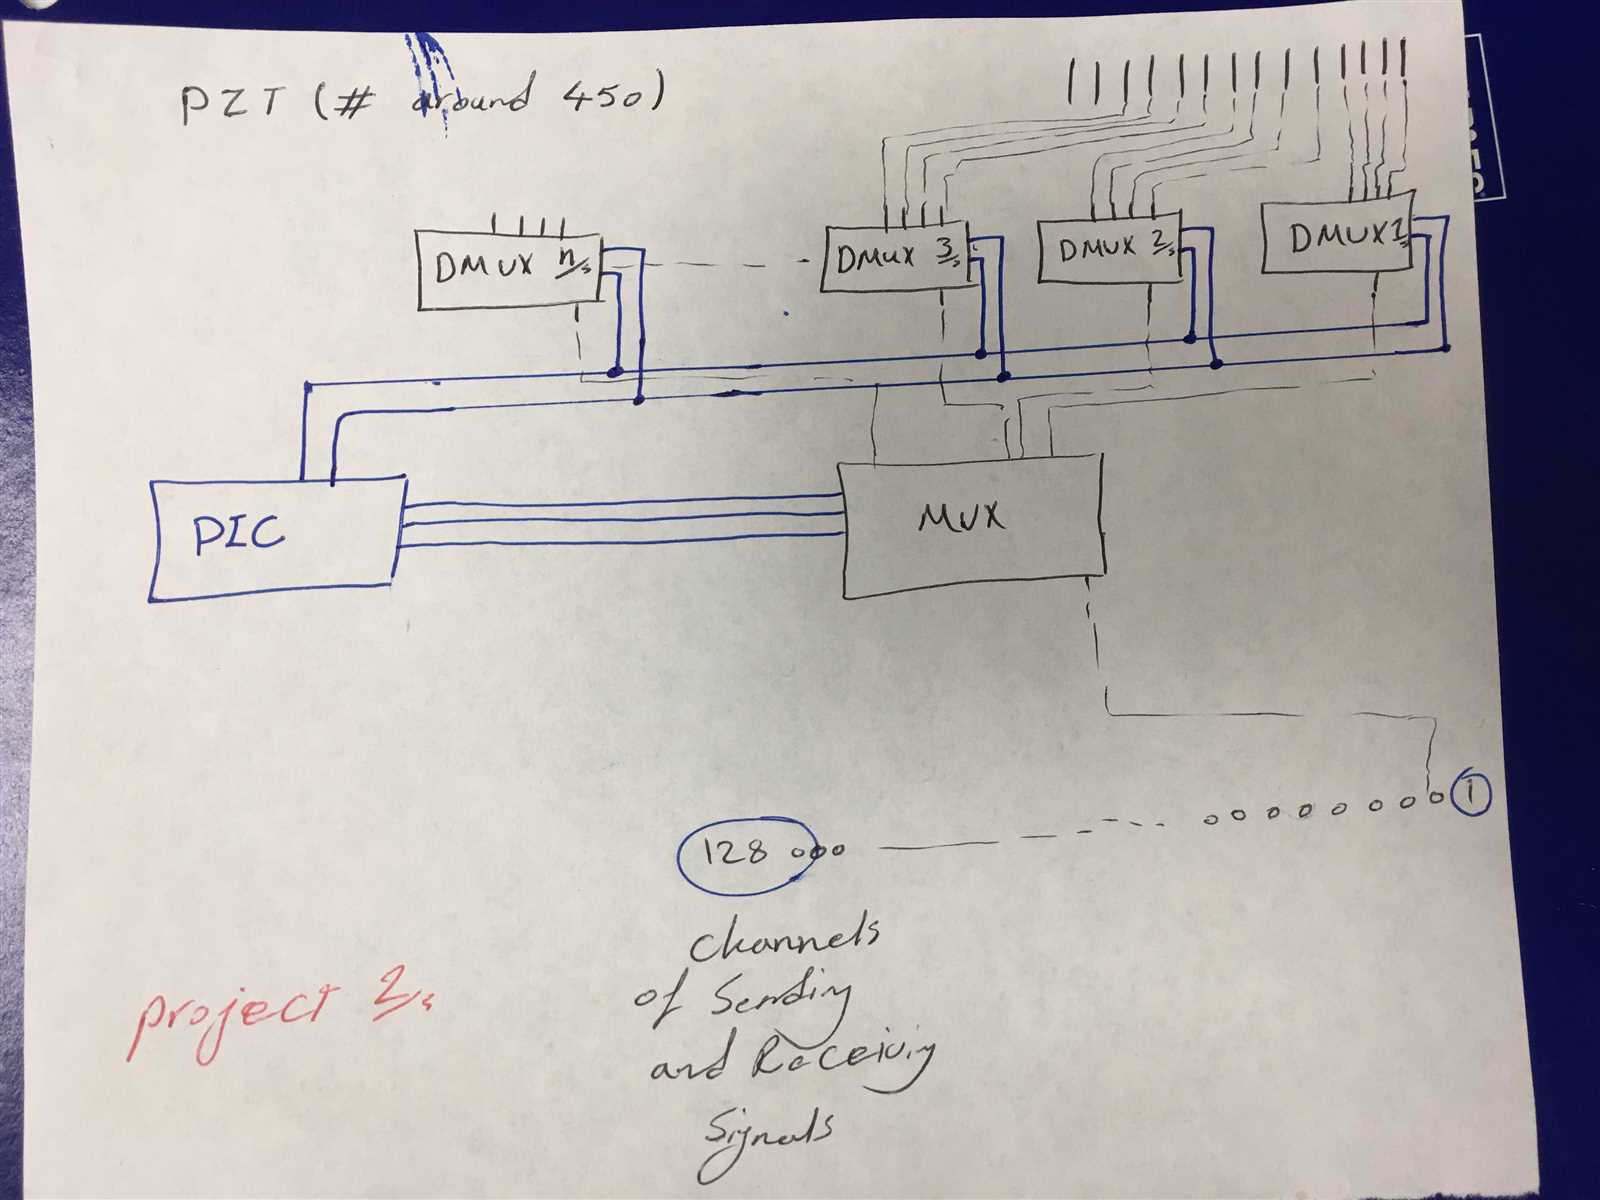 PZT (# around 450)
DMUX n
DMUX 3
DMUX 2
DMUX 1
PIC
MUX
1
128
channels
of Sending
and Receiving
Signals
project 2